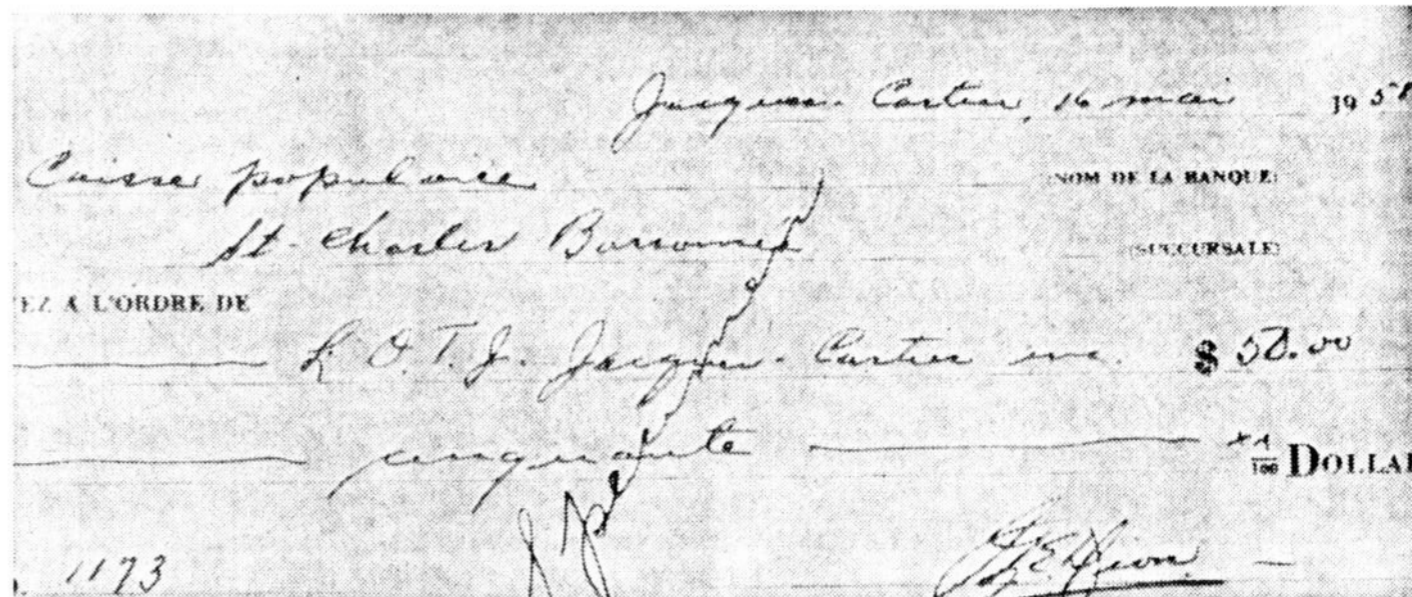 Jacques-Cartier, 16 mai 1958
Caisse populaire (NOM DE LA BANQUE)
St-Charles Borromée (SUCCURSALE)
EZ A L'ORDRE DE
L'O.T.J. Jacques-Cartier inc. $ 50.00
cinquante xx/100 DOLLA
1173